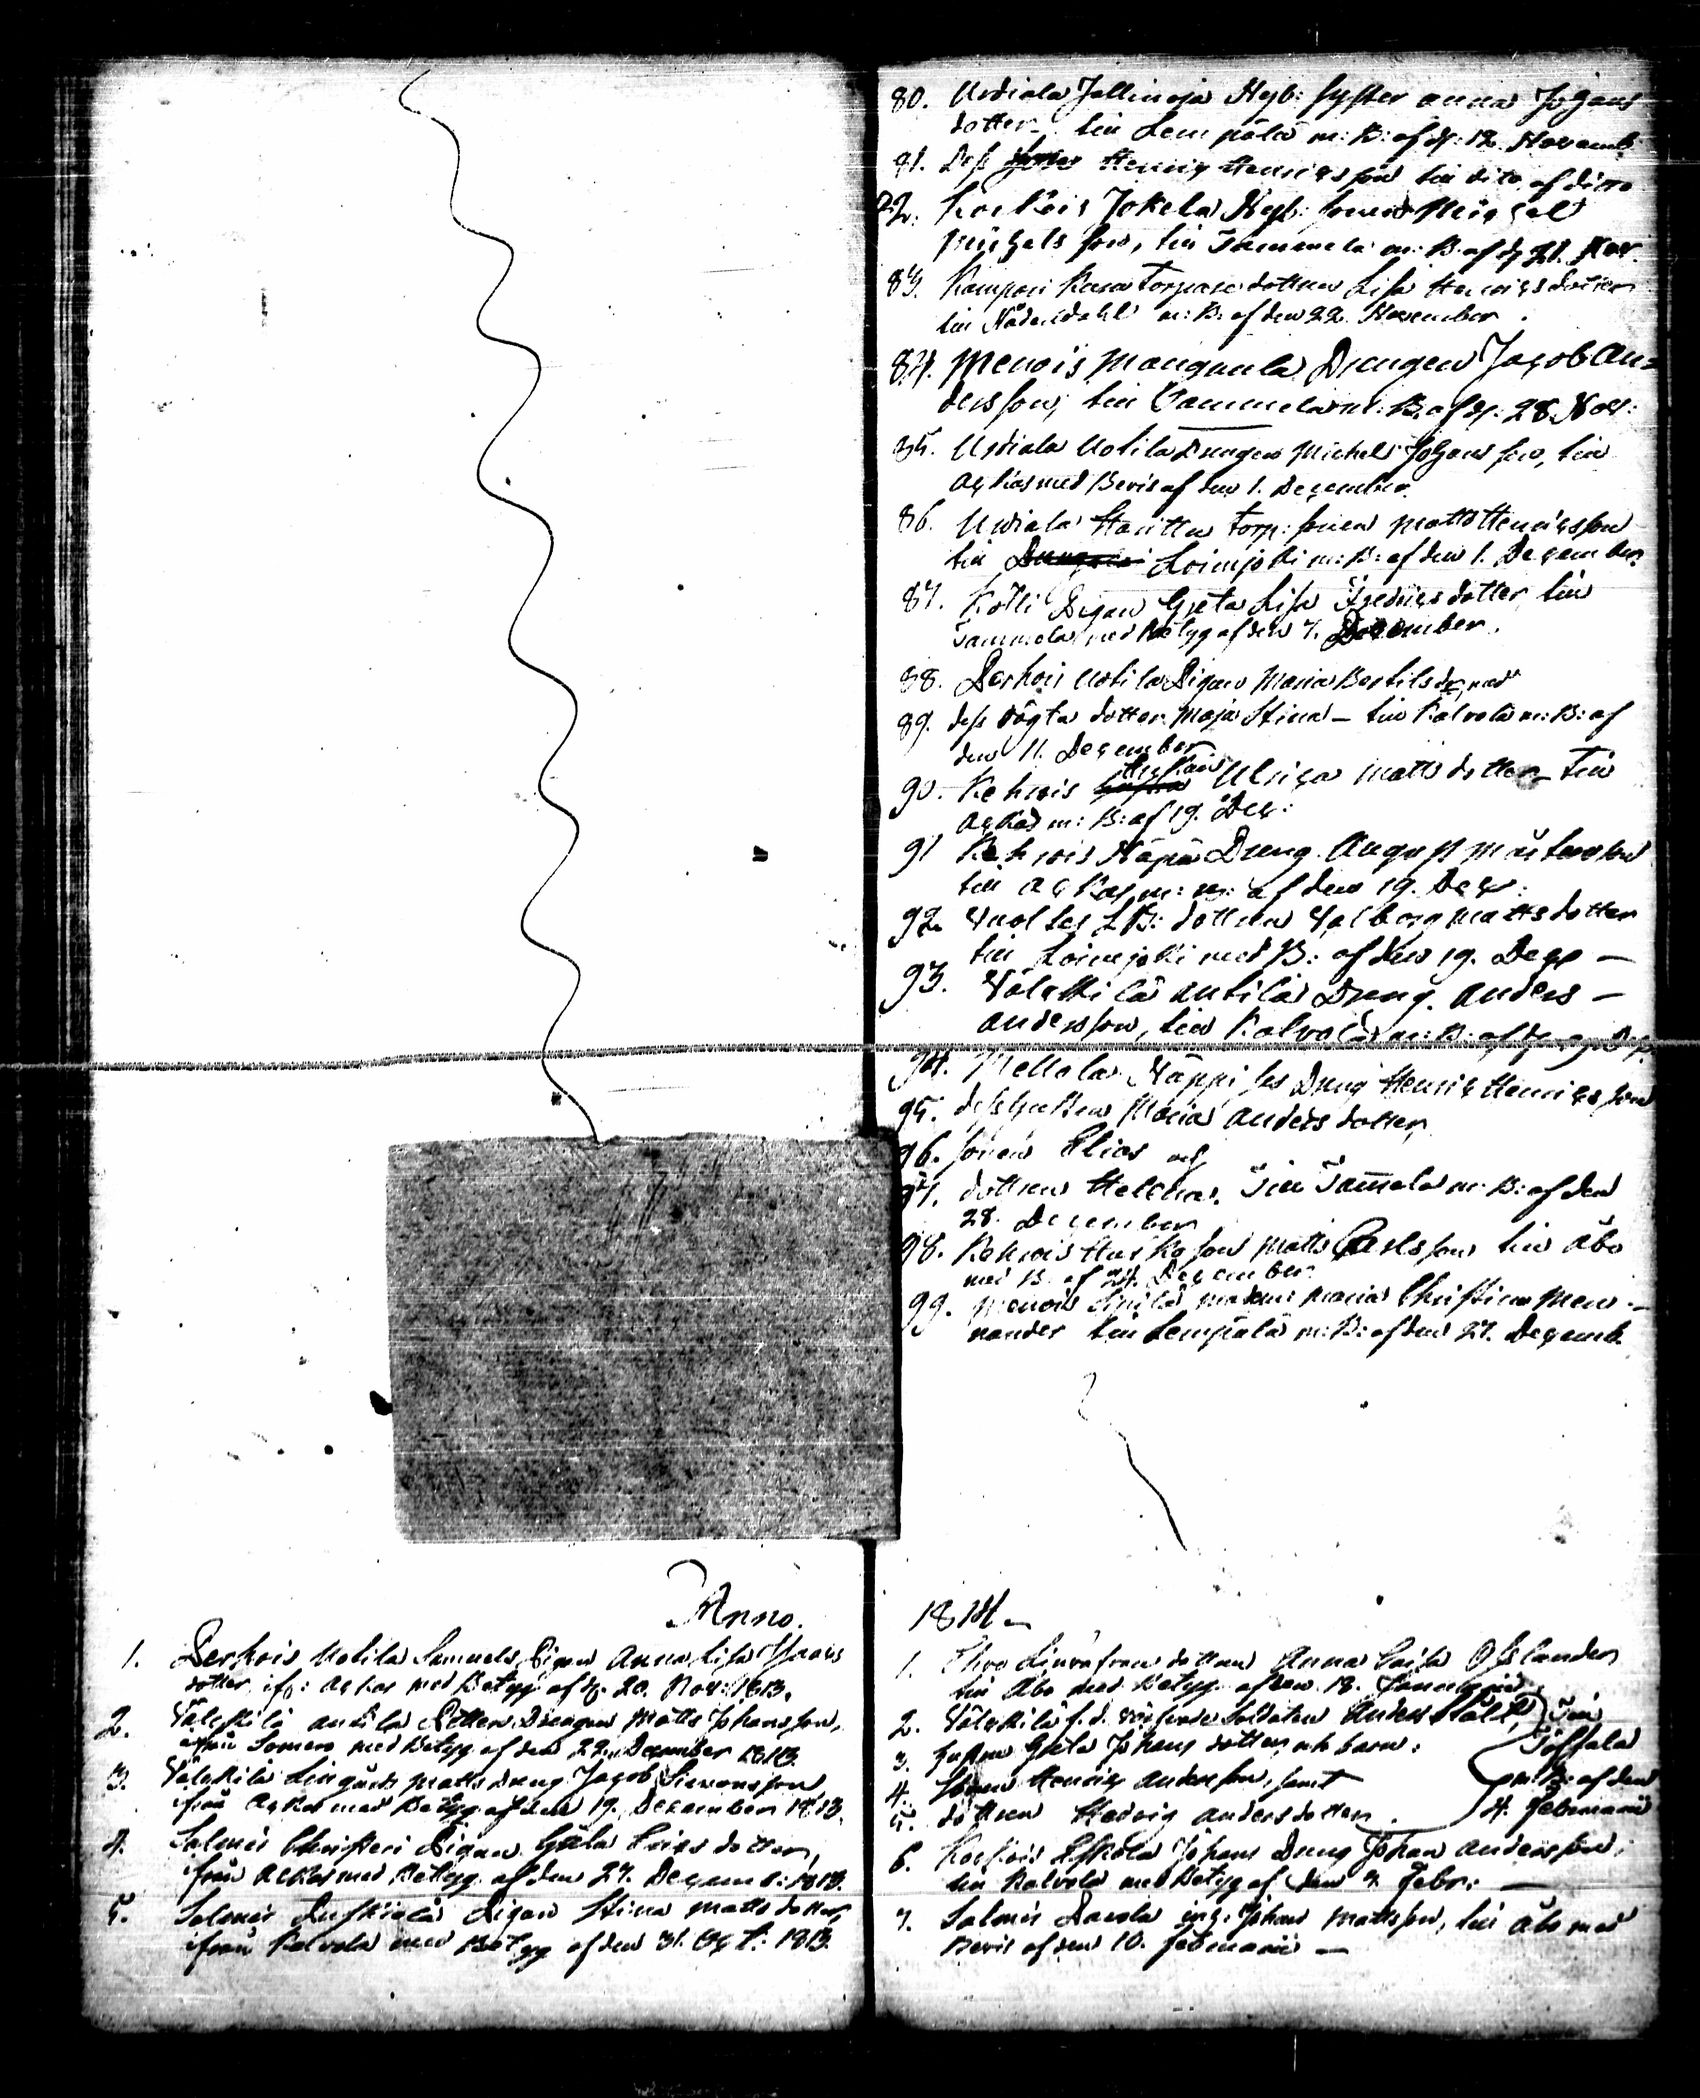 80. Urdiala Jallinoja Nyb: syster Anna Johans
dotter till Lempälä m: B: af d: 12. Novemb.
81. Dess Henric Henricsson till dito af ditto
82. Kockois Jokela Nyb: sonen Michel
Michels son, till Tammela m: B: af d 21. Nov.
83. Kamponi Torpare dottren Lisa Henricsdotter
till Nådendahl m: B: af den 22. November.
84. Menois Mangunla Drengen Jacob An=
dersson, till Tammela m: B. af d: 28. Nov:
85. Urdiala Uotila Drengen Michel Johansson, till
Ackas med Bevis af den 1. December.
86. Urdiala Torp: sonen Matts Henricsson
till Loimjoki m: B: af den 1. December
87. Kolli Pigan Greta Lisa Fredricsdotter till
Tammela med Betyg af den 7. December.
88. Uotila Pigan Maria Bertilsdr, med
89. dess oägta dotter Maja Stina – till Kalvola m: B: af
den 11. December
90. Kehrois Enkan Ulrica Mattsdotter till
Ackas m: B: af 19. Dec:
91 Kehrois Näpiä Dreng August
till Ackas m: B: af den 19. Dec:
92. dottren Valborg Mattsdotter
till Loimjoki med B: af den 19. Dec –
93. Välckilä Antila Dreng. Anders –
Andersson, till Kalvola m: B: af
94. Mellola Näppi Dreng Henric Henricsson
95. dess hustru Maria Andersdotter,
96. sonen Elias och
97. dottren Helena. Till Tam̅ela m: B: af den
28. December
98. Kehrois Matts Carlsson till Åbo
med B. af 24. December
99. Menois Maria Christina Men –
nander till Lempälä m: B: af den 27. Decemb.
Anno.
1. Uotila Samuels Pigan Anna Lisa Isaacs
dotter, ifr: Ackas med Betyg af d. 20. Nov: 1813.
2. Välckilä Antila Drengen Matts Johansson,
ifrån Somero med Betyg af den 22. December 1813.
3. Välckilä Matts dreng Jacob Simonsson
ifrån Ackas med Betyg af den 19. December 1813.
4. Salmis Christeri Pigan Greta Ericsdotter,
från Ackas med Betyg af den 27. Decemb: 1813.
5. Salmis Pigan Stina Mattsdotter,
ifrån Kalvola med Betyg af den 31. Oct: 1813.
1814 –
1. dottren Anna Caisa
till Åbo med Betyg af den 18. Januarii
2. Välckilä f. d. Soldaten Anders Stålt, Till
3. hustru Greta Johansdotter, och barn: Töffsala
4. Sonen Henric Andersson, samt m: B: af den
5. dottren Hedvig Andersdotter. 4. Februarii
6. Johans Dreng Johan Andersson,
till Kalvola med Betyg af den 7. Febr: –
7. Salmis Johan Mattsson, till Åbo med
Bevis af den 10. Februarii –